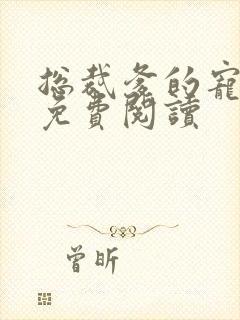 总裁爹的寵
免費閱讀
曾昕